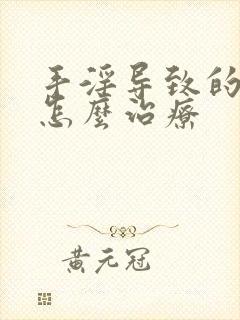 手淫导致的
怎麼治療
黃元冠